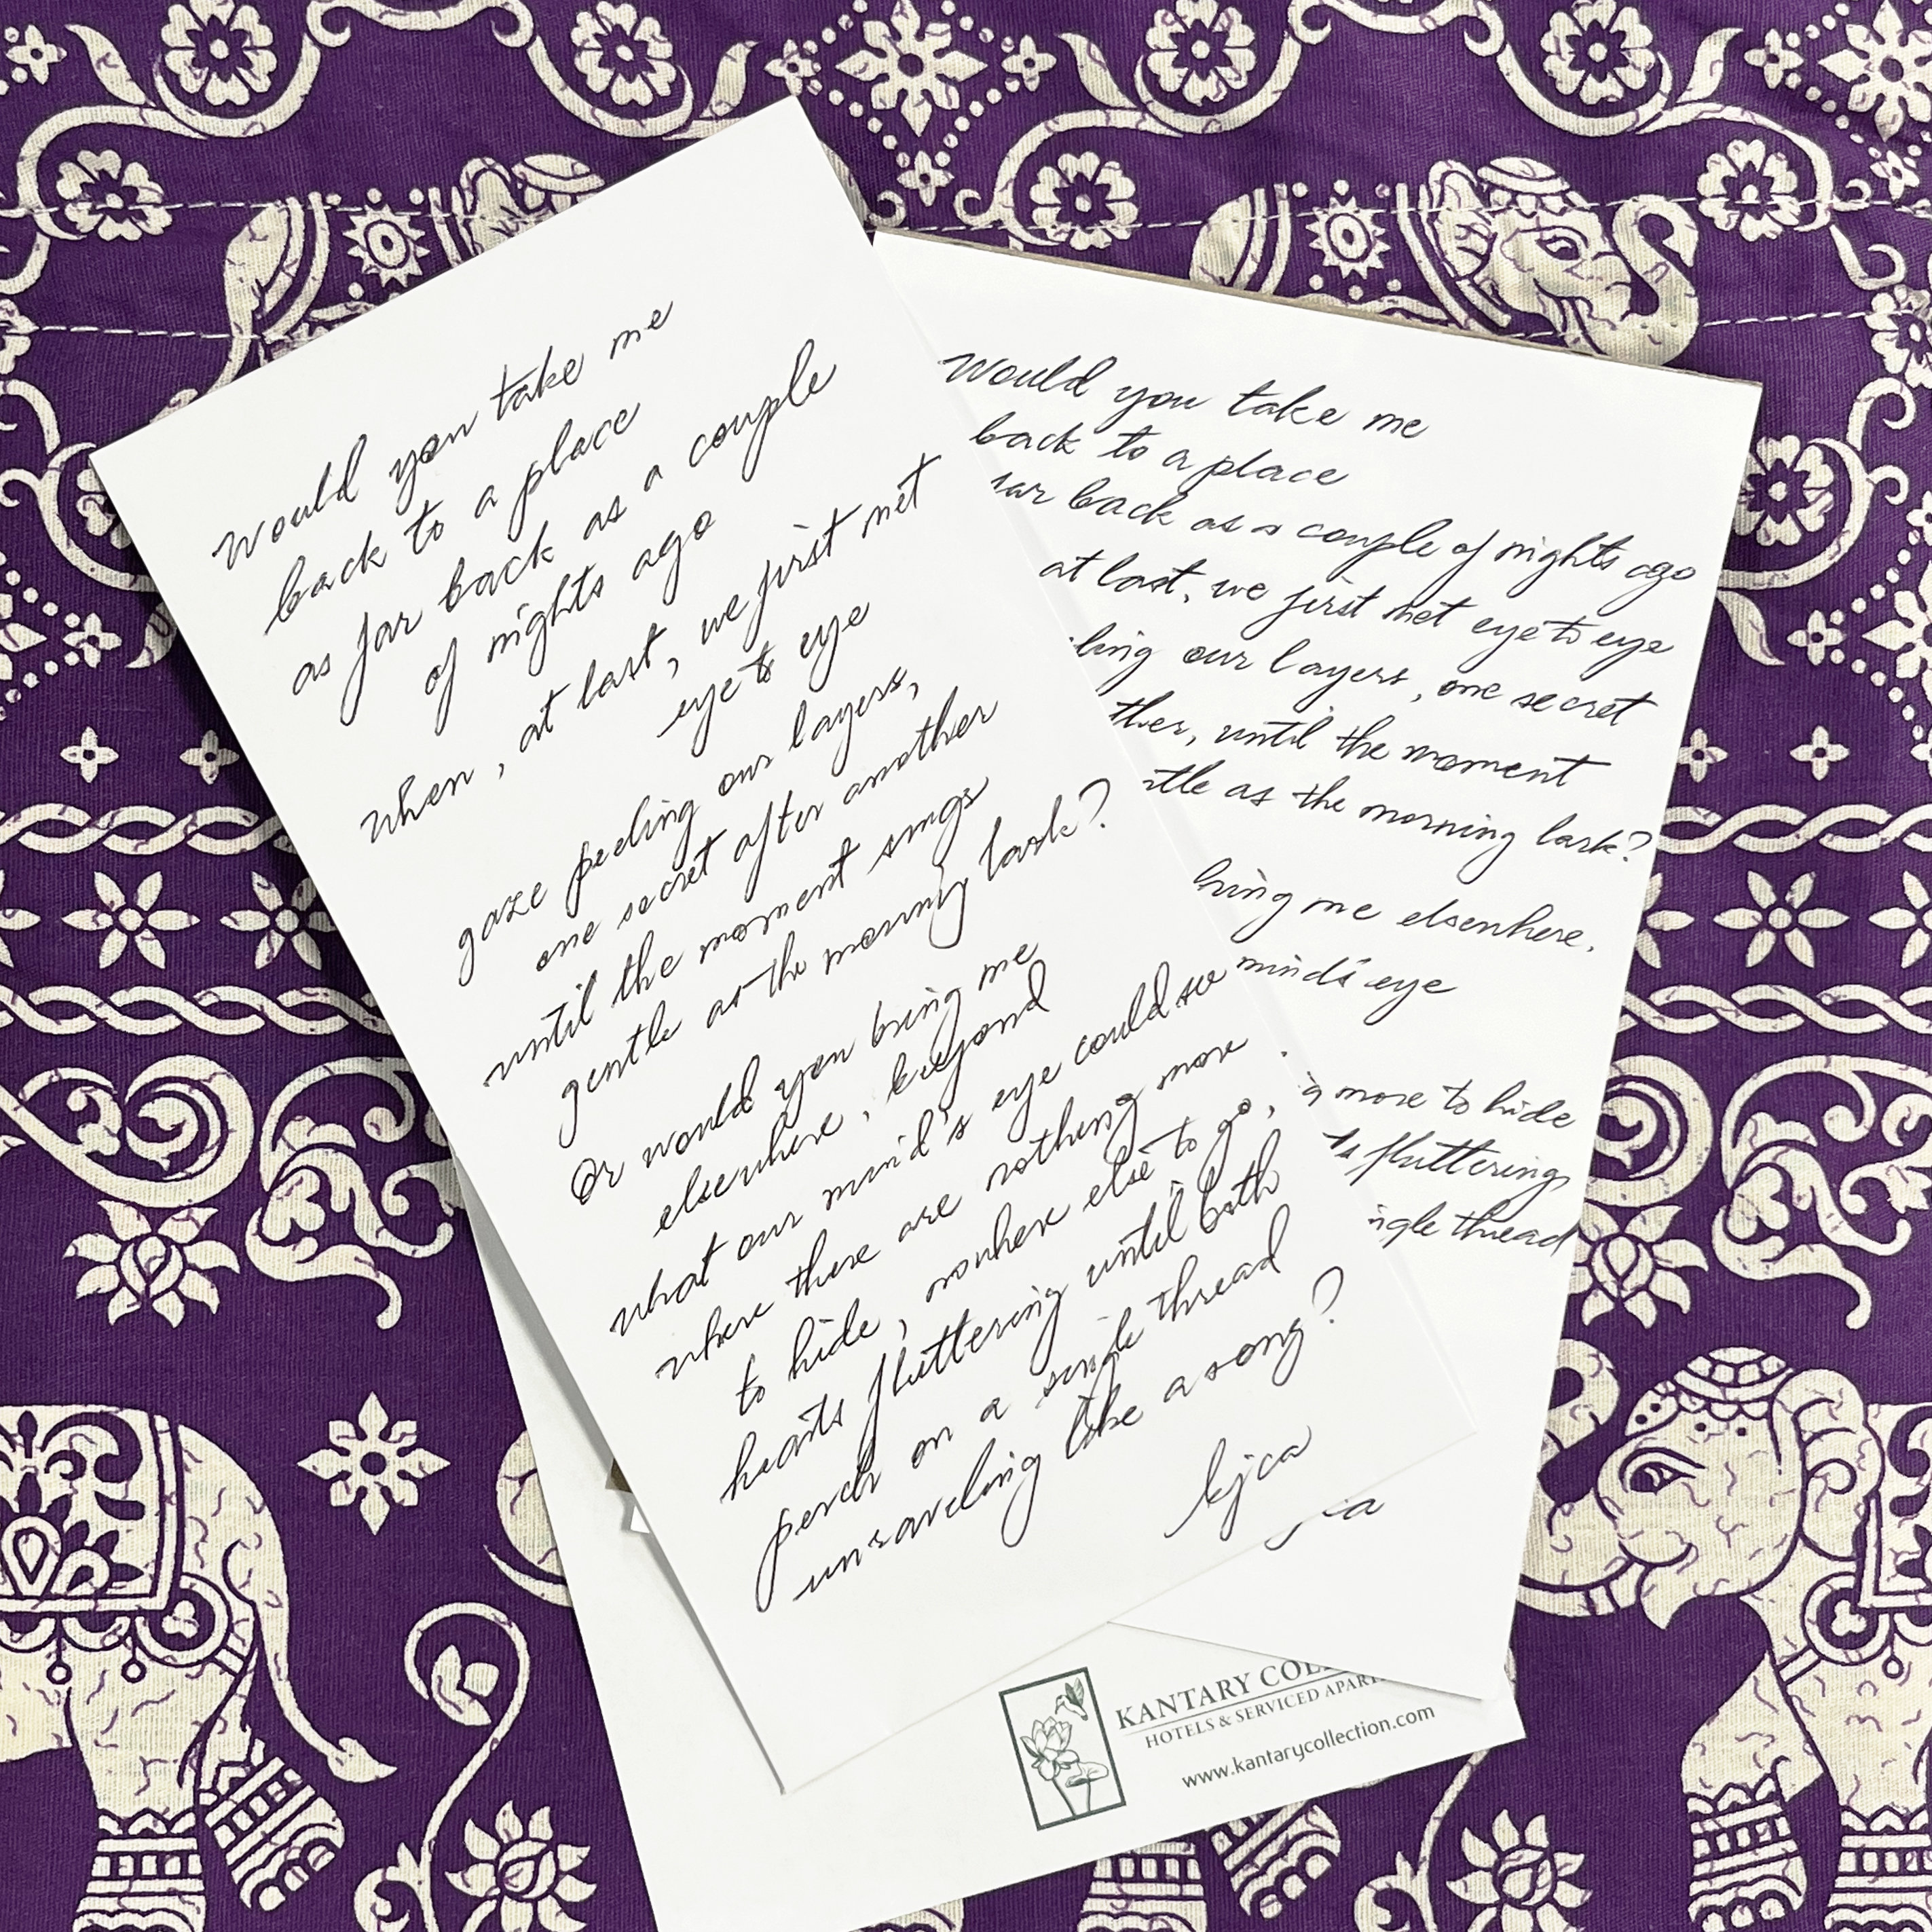 Would you take me
back to a place
as far back as a couple
of nights ago
when, at last, we first met
eye to eye
gaze peeling our layers,
one secret after another
until the moment sings
gentle as the morning lark?
Or would you bring me
elsewhere, beyond
what our mind's eye could see
where there are nothing more
to hide, nowhere else to go,
hearts fluttering until both
perch on a single thread
unraveling like a song?
kjca
Would you take me
back to a place
far back as a couple of nights ago
at last, we first met eye to eye
ling our layers, one secret
ther, until the moment
ntle as the morning lark?
bring me elsewhere,
mind's eye
g more to hide
ts fluttering
ngle thread
ca
KANTARY COL
HOTELS & SERVICED APAR
www.kantarycollection.com